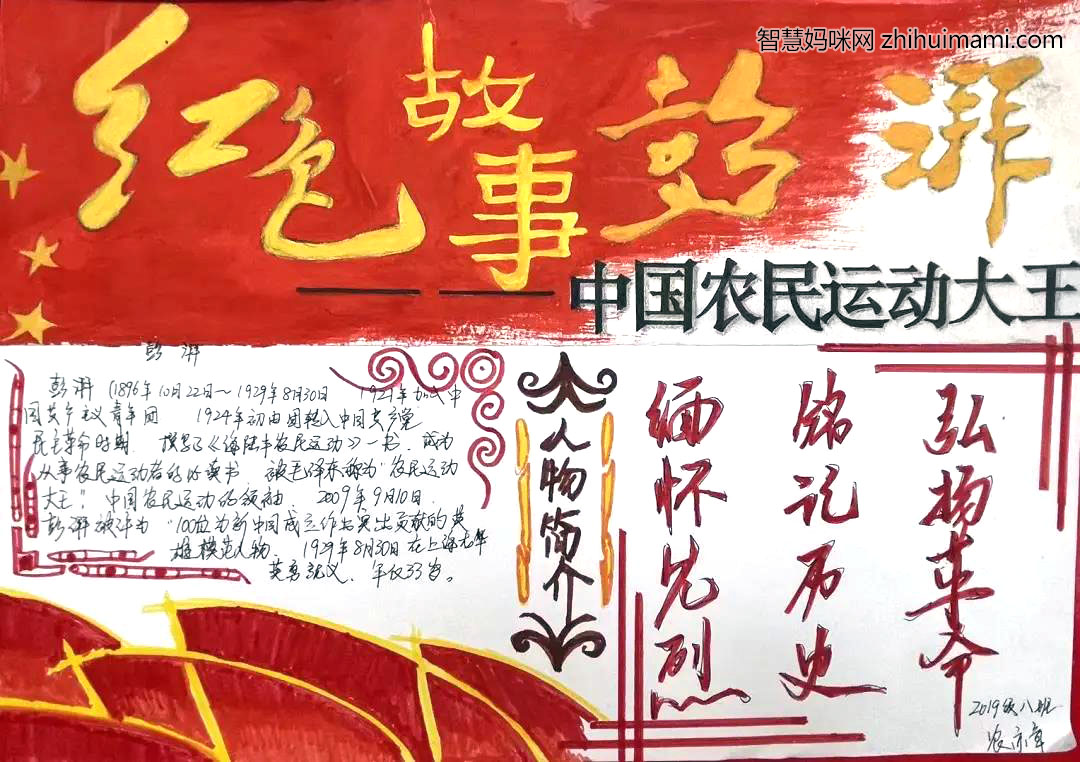 智慧妈咪网 zhihuimami.com
红色故事彭湃
——中国农民运动大王
彭湃
彭湃(1896年10月22日～1929年8月30日 1921年加入中
国共产主义青年团 1924年初由团转入中国共产党
民主革命时期 撰写了《海陆丰农民运动》一书,成为
从事农民运动者的必读书 被毛泽东称为"农民运动
大王" 中国农民运动的领袖. 2009年9月10日.
彭湃被评为 "100位为新中国成立作出突出贡献的英
雄模范人物. 1929年8月30日在上海龙华
英勇就义, 年仅33岁。
人物简介
缅怀先烈
铭记历史
弘扬革命
2019级八班